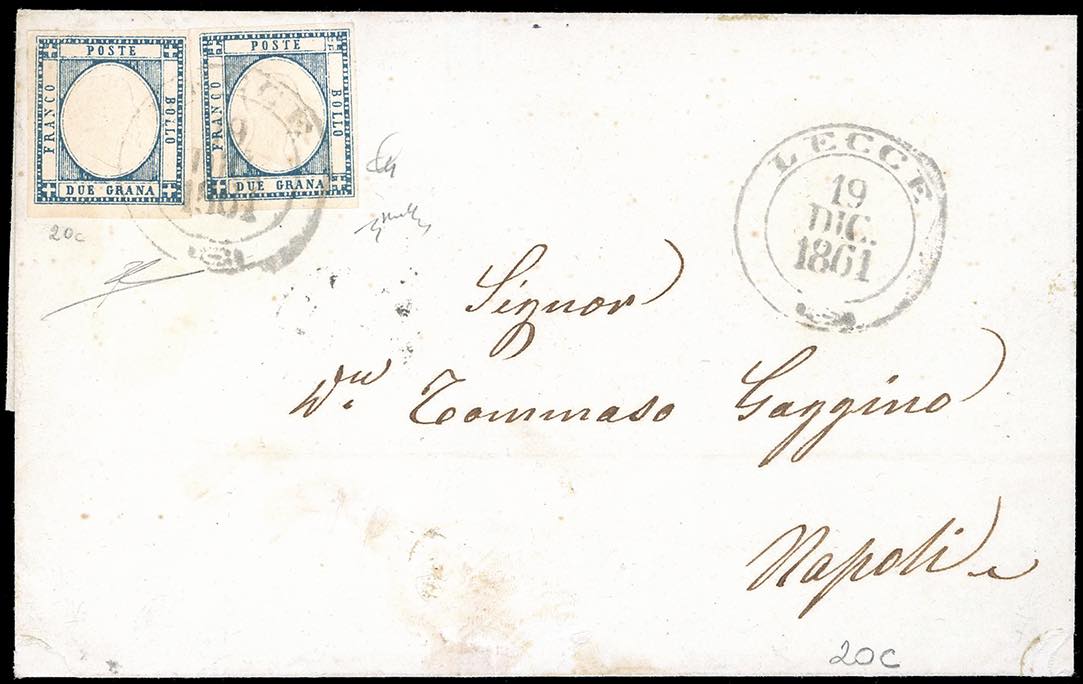 POSTE
FRANCO
BOLLO
DUE GRANA
POSTE
FRANCO
BOLLO
DUE GRANA
20c
LECCE
19
DIC.
1861
LECCE
19
DIC.
1861
Signor
Tommaso Gaggino
Napoli
20c